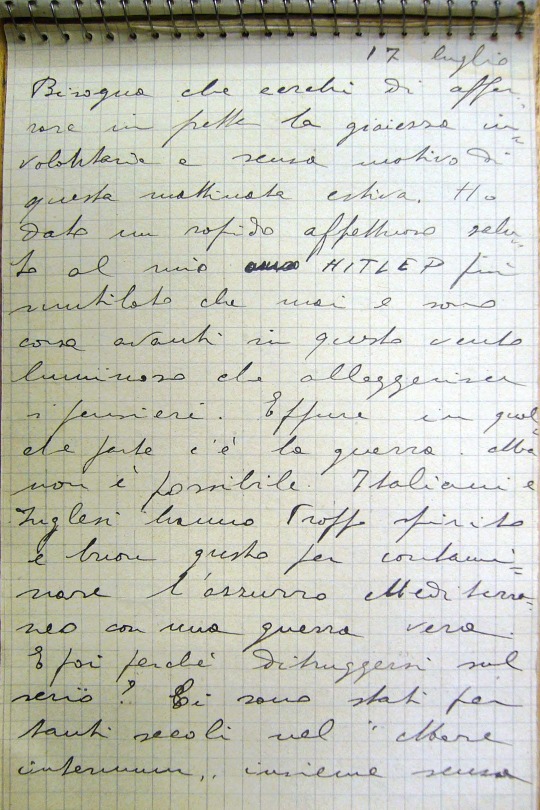 17 luglio
Bisogna che cerchi di affer-
rare in fretta la gaiezza in=
volontaria e senza motivo di
questa mattinata estiva. Ho
dato un rapido affettuoso salu-
to al mio HITLER più
mutilato che mai e sono
corsa avanti in questo vento
luminoso che alleggerisce
i pensieri. Eppure in qual-
che parte c'è la guerra. Ma
non è possibile. Italiani e
Inglesi hanno troppo spirito
e buon gusto per contami=
nare l'azzurro Mediterra-
neo con una guerra vera.
E poi perché distruggersi sul
serio? Ci sono stati per
tanti secoli nel "Mare
internum,, insieme senza